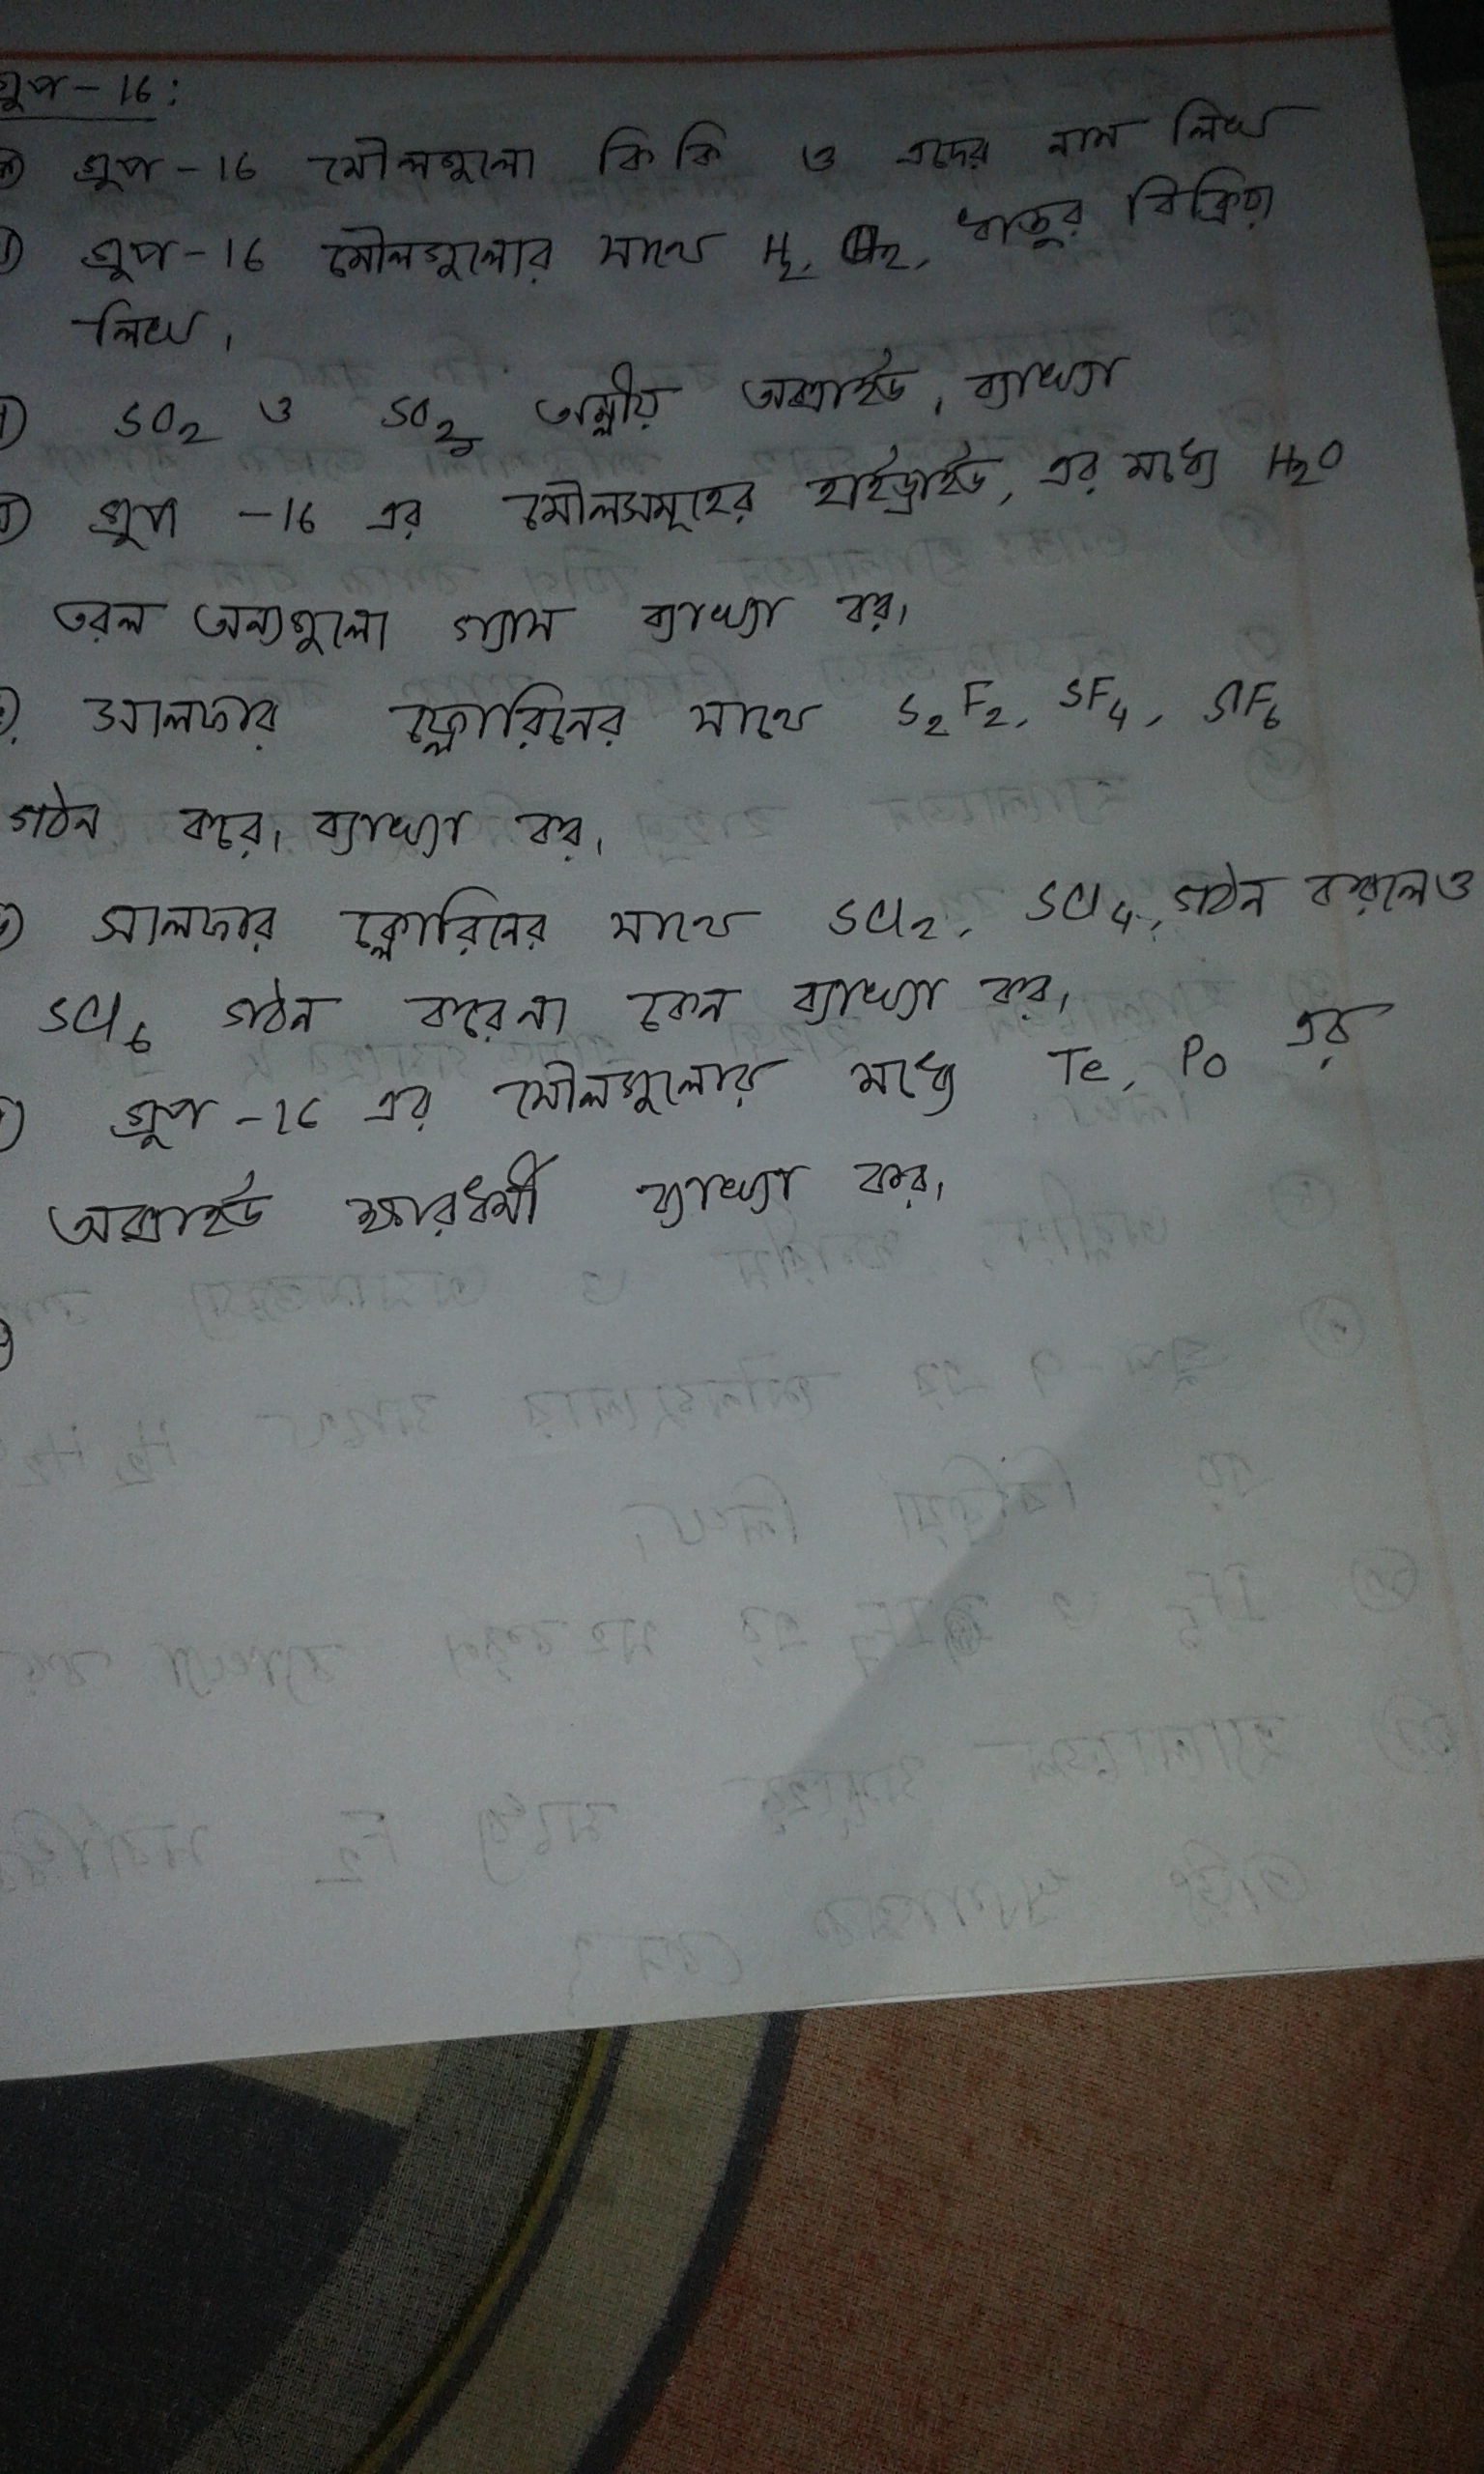 গ্রুপ - 16 :
গ্রুপ - 16 মৌলগুলো কি কি ও এদের নাম লিখ
গ্রুপ - 16 মৌলগুলোর সাথে H2, O2, ধাতুর বিক্রিয়া
লিখ।
SO2 ও SO3 অম্লীয় অক্সাইড, ব্যাখ্যা
গ্রুপ - 16 এর মৌলসমূহের হাইড্রাইড, এর মধ্যে H2O
তরল অন্যগুলো গ্যাস ব্যাখ্যা কর।
সালফার ফ্লোরিনের সাথে S2F2, SF4, SF6
গঠন করে। ব্যাখ্যা কর।
সালফার ক্লোরিনের সাথে SCl2, SCl4, গঠন করলেও
SCl6 গঠন করেনা কেন ব্যাখ্যা কর।
গ্রুপ - 16 এর মৌলগুলোর মধ্যে Te, Po এর
অক্সাইড ক্ষারধর্মী ব্যাখ্যা কর।